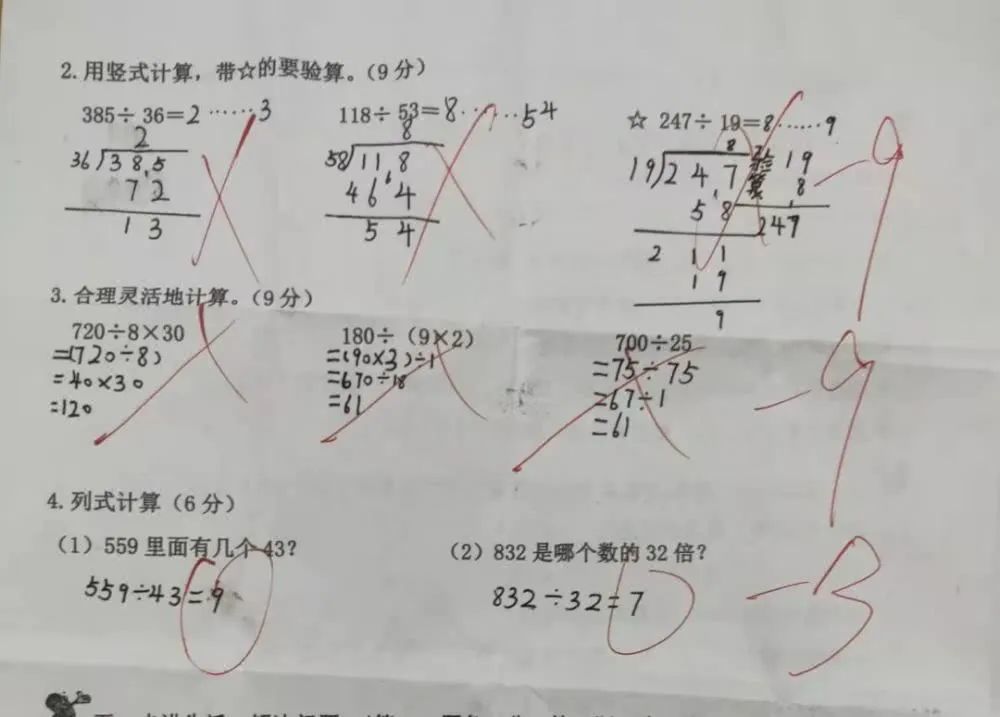 2. 用竖式计算，带☆的要验算。（9分）
385÷36=2……3
118÷53=8……54
☆ 247÷19=8……9
2
36)38.5
72
13
8
58)118
464
54
8
19)247
58
211
19
9
验算
19
8
247
-9
3. 合理灵活地计算。（9分）
720÷8×30
=(720÷8)
=40×30
=120
180÷（9×2）
=(90×3)÷1
=670÷18
=61
700÷25
=75÷75
=67÷1
=61
-9
4. 列式计算（6分）
（1）559里面有几个43？
（2）832是哪个数的32倍？
559÷43=9
832÷32=7
-3